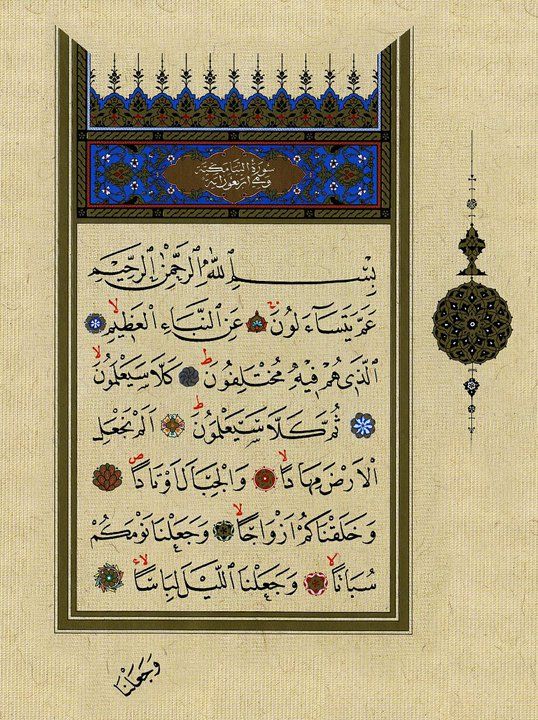 سورة النبأ مكية
وهي أربعون آية
بِسْمِ اللّٰهِ الرَّحْمٰنِ الرَّحِيمِ
عَمَّ يَتَسَاءَلُونَ عَنِ النَّبَاءِ الْعَظِيمِ
الَّذِى هُمْ فِيهِ مُخْتَلِفُونَ كَلَّا سَيَعْلَمُونَ
ثُمَّ كَلَّا سَيَعْلَمُونَ اَلَمْ نَجْعَلِ
الْاَرْضَ مِهَادًا وَالْجِبَالَ اَوْتَادًا
وَخَلَقْنَاكُمْ اَزْوَاجًا وَجَعَلْنَا نَوْمَكُمْ
سُبَاتًا وَجَعَلْنَا اللَّيْلَ لِبَاسًا
وَجَعَلْنَا